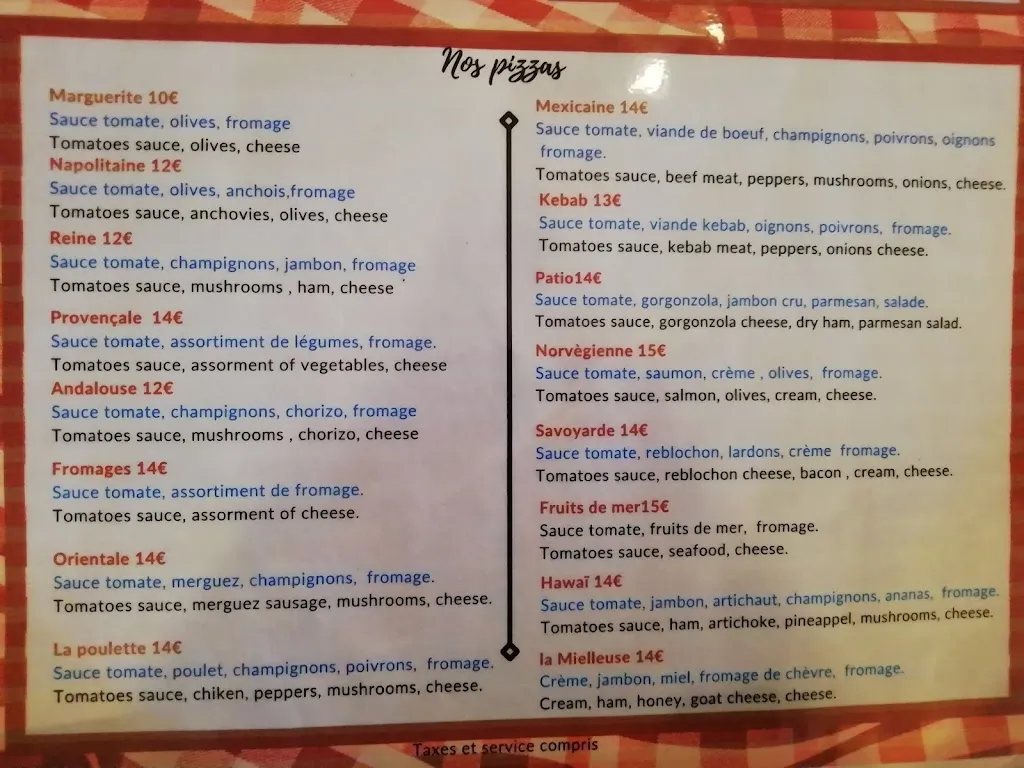 Nos pizzas
Marguerite 10€
Sauce tomate, olives, fromage
Tomatoes sauce, olives, cheese
Napolitaine 12€
Sauce tomate, olives, anchois,fromage
Tomatoes sauce, anchovies, olives, cheese
Reine 12€
Sauce tomate, champignons, jambon, fromage
Tomatoes sauce, mushrooms , ham, cheese
Provençale 14€
Sauce tomate, assortiment de légumes, fromage.
Tomatoes sauce, assorment of vegetables, cheese
Andalouse 12€
Sauce tomate, champignons, chorizo, fromage
Tomatoes sauce, mushrooms , chorizo, cheese
Fromages 14€
Sauce tomate, assortiment de fromage.
Tomatoes sauce, assorment of cheese.
Orientale 14€
Sauce tomate, merguez, champignons, fromage.
Tomatoes sauce, merguez sausage, mushrooms, cheese.
La poulette 14€
Sauce tomate, poulet, champignons, poivrons, fromage.
Tomatoes sauce, chiken, peppers, mushrooms, cheese.
Mexicaine 14€
Sauce tomate, viande de boeuf, champignons, poivrons, oignons
fromage.
Tomatoes sauce, beef meat, peppers, mushrooms, onions, cheese.
Kebab 13€
Sauce tomate, viande kebab, oignons, poivrons, fromage.
Tomatoes sauce, kebab meat, peppers, onions cheese.
Patio14€
Sauce tomate, gorgonzola, jambon cru, parmesan, salade.
Tomatoes sauce, gorgonzola cheese, dry ham, parmesan salad.
Norvègienne 15€
Sauce tomate, saumon, crème , olives, fromage.
Tomatoes sauce, salmon, olives, cream, cheese.
Savoyarde 14€
Sauce tomate, reblochon, lardons, crème fromage.
Tomatoes sauce, reblochon cheese, bacon , cream, cheese.
Fruits de mer15€
Sauce tomate, fruits de mer, fromage.
Tomatoes sauce, seafood, cheese.
Hawaï 14€
Sauce tomate, jambon, artichaut, champignons, ananas, fromage.
Tomatoes sauce, ham, artichoke, pineapple, mushrooms, cheese.
la Mielleuse 14€
Crème, jambon, miel, fromage de chèvre, fromage.
Cream, ham, honey, goat cheese, cheese.
Taxes et service compris